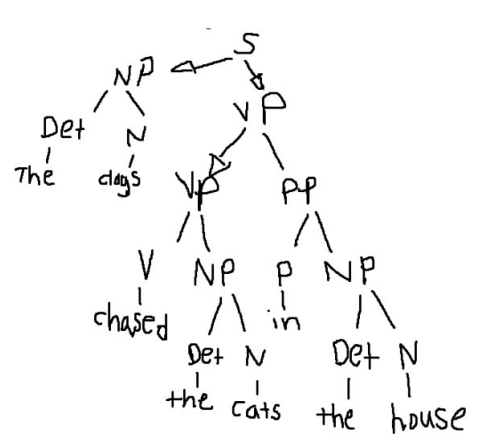 S
NP
VP
Det N
The dogs
VP PP
V NP P NP
chased in
Det N Det N
the cats the house